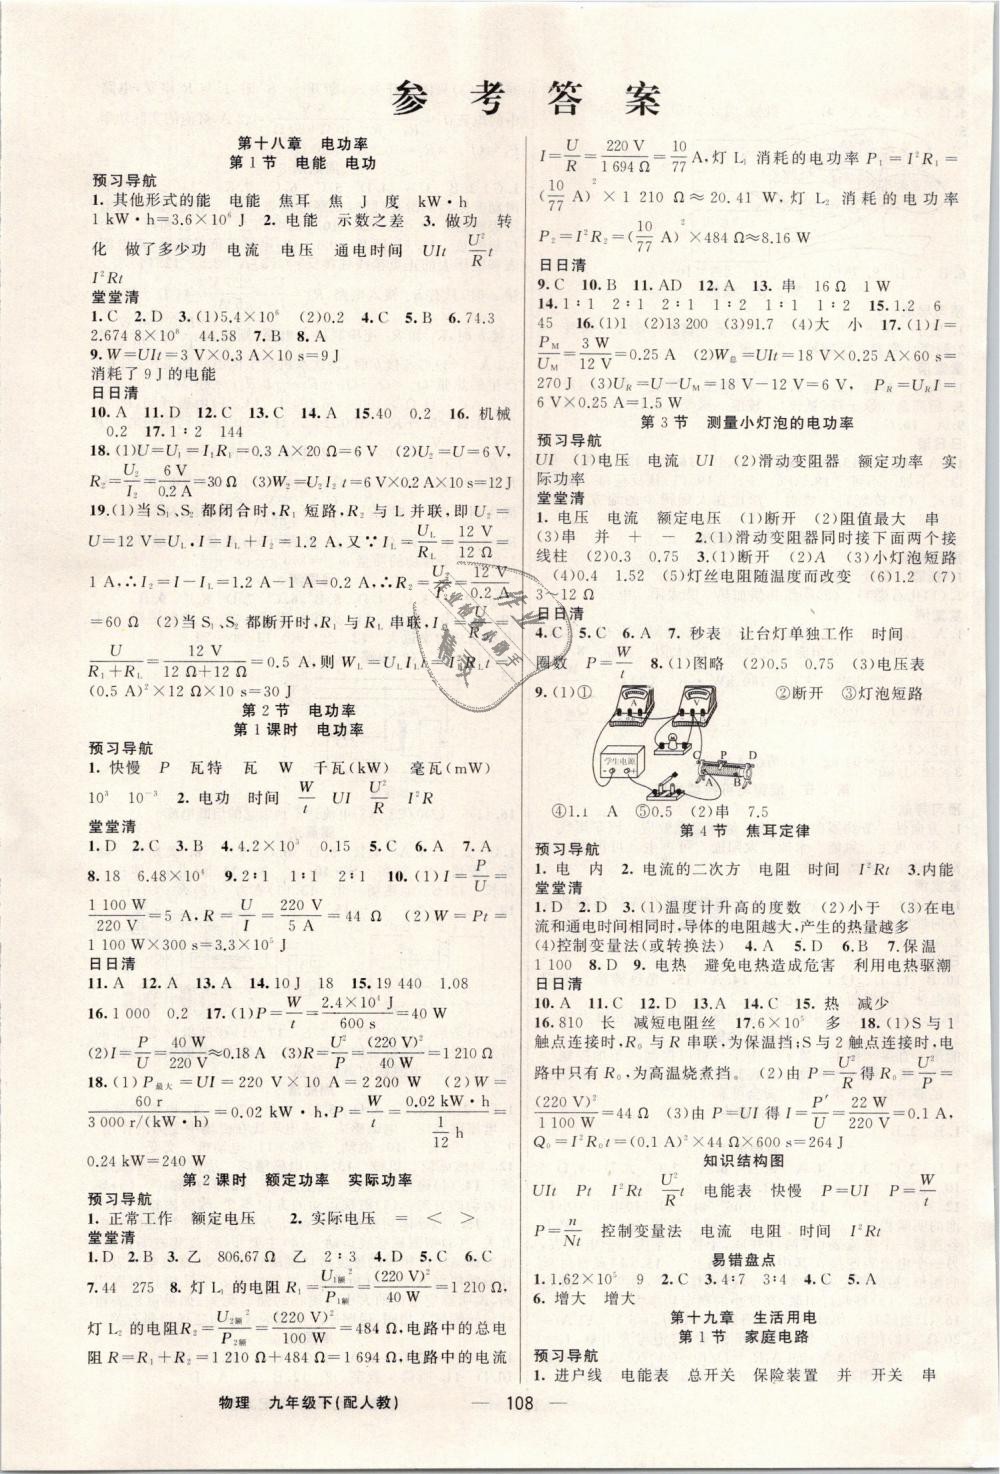 参考答案
第十八章 电功率
第1节 电能 电功
预习导航
1. 其他形式的能 电能 焦耳 焦 J 度 kW·h
1 kW·h=3.6×10⁶ J 2. 电能 示数之差 3. 做功 转
化 做了多少功 电流 电压 通电时间 UIt U²/R t
I²Rt
堂堂清
1. C 2. D 3. (1)5.4×10⁶ (2)0.2 4. C 5. B 6. 74.3
2.674 8×10⁸ 44.58 7. B 8. A
9. W=UIt=3 V×0.3 A×10 s=9 J
消耗了 9 J 的电能
日日清
10. A 11. D 12. C 13. C 14. A 15. 40 0.2 16. 机械
0.2 17. 1∶2 144
18. (1)U=U₁=I₁R₁=0.3 A×20 Ω=6 V (2)U₂=U=6 V,
R₂=U₂/I₂=6 V/0.2 A=30 Ω (3)W₂=U₂I₂t=6 V×0.2 A×10 s=12 J
19. (1)当 S₁、S₂ 都闭合时,R₁ 短路,R₂ 与 L 并联,即 U₂=
U=12 V=U_L,I=I_L+I₂=1.2 A,又∵I_L=U_L/R_L=12 V/12 Ω=
1 A,∴I₂=I−I_L=1.2 A−1 A=0.2 A,∴R₂=U₂/I₂=12 V/0.2 A
=60 Ω (2)当 S₁、S₂ 都断开时,R₁ 与 R_L 串联,I=U/R
U/(R₁+R_L)=12 V/(12 Ω+12 Ω)=0.5 A,则 W_L=U_LI_Lt=I²R_Lt=
(0.5 A)²×12 Ω×10 s=30 J
第2节 电功率
第1课时 电功率
预习导航
1. 快慢 P 瓦特 瓦 W 千瓦(kW) 毫瓦(mW)
10³ 10⁻³ 2. 电功 时间 W/t UI U²/R I²R
堂堂清
1. D 2. C 3. B 4. 4.2×10³ 0.15 5. C 6. A 7. A
8. 18 6.48×10⁴ 9. 2∶1 1∶1 2∶1 10. (1)I=P/U=
1 100 W/220 V=5 A,R=U/I=220 V/5 A=44 Ω (2)W=Pt=
1 100 W×300 s=3.3×10⁵ J
日日清
11. A 12. A 13. A 14. 10 J 18 15. 19 440 1.08
16. 1 000 0.2 17. (1)P=W/t=2.4×10⁴ J/600 s=40 W
(2)I=P/U=40 W/220 V≈0.18 A (3)R=U²/P=(220 V)²/40 W=1 210 Ω
18. (1)P最大=UI=220 V×10 A=2 200 W (2)W=
60 r/3 000 r/(kW·h)=0.02 kW·h,P=W/t=0.02 kW·h/(1/12 h)=
0.24 kW=240 W
第2课时 额定功率 实际功率
预习导航
1. 正常工作 额定电压 2. 实际电压 = < >
堂堂清
1. D 2. B 3. 乙 806.67 Ω 乙 2∶3 4. D 5. C 6. C
7. 44 275 8. 灯 L₁ 的电阻 R₁=U₁额²/P₁额=(220 V)²/40 W=1 210 Ω,
灯 L₂ 的电阻R₂=U₂额²/P₂额=(220 V)²/100 W=484 Ω,电路中的总电
阻 R=R₁+R₂=1 210 Ω+484 Ω=1 694 Ω,电路中的电流
I=U/R=220 V/1 694 Ω=10/77 A,灯 L₁ 消耗的电功率 P₁=I²R₁=
(10/77 A)²×1 210 Ω≈20.41 W,灯 L₂ 消耗的电功率
P₂=I²R₂=(10/77 A)²×484 Ω≈8.16 W
日日清
9. C 10. B 11. AD 12. A 13. 串 16 Ω 1 W
14. 1∶1 2∶1 2∶1 1∶2 1∶1 1∶2 15. 1.2 6
45 16. (1)1 (2)13 200 (3)91.7 (4)大 小 17. (1)I=
P_M/U_M=3 W/12 V=0.25 A (2)W总=UIt=18 V×0.25 A×60 s=
270 J (3)U_R=U−U_M=18 V−12 V=6 V, P_R=U_RI=
6 V×0.25 A=1.5 W
第3节 测量小灯泡的电功率
预习导航
UI (1)电压 电流 UI (2)滑动变阻器 额定功率 实
际功率
堂堂清
1. 电压 电流 额定电压 (1)断开 (2)阻值最大 串
(3)串 并 + − 2. (1)滑动变阻器同时接下面两个接
线柱 (2)0.3 0.75 3. (1)断开 (2)A (3)小灯泡短路
(4)0.4 1.52 (5)灯丝电阻随温度而改变 (6)1.2 (7)
3～12 Ω
日日清
4. C 5. C 6. A 7. 秒表 让台灯单独工作 时间
圈数 P=W/t 8. (1)图略 (2)0.5 0.75 (3)电压表
9. (1)① ②断开 ③灯泡短路
A V
学生电源
C P D
A B
④1.1 A ⑤0.5 (2)串 7.5
第4节 焦耳定律
预习导航
1. 电 内 2. 电流的二次方 电阻 时间 I²Rt 3. 内能
堂堂清
1. D 2. D 3. (1)温度计升高的度数 (2)小于 (3)在电
流和通电时间相同时,导体的电阻越大,产生的热量越多
(4)控制变量法(或转换法) 4. A 5. D 6. B 7. 保温
1 100 8. D 9. 电热 避免电热造成危害 利用电热驱潮
日日清
10. A 11. C 12. D 13. A 14. C 15. 热 减少
16. 810 长 减短电阻丝 17. 6×10⁵ 多 18. (1)S 与 1
触点连接时,R₀ 与 R 串联,为保温挡;S 与 2 触点连接时,电
路中只有 R₀,为高温烧煮挡。 (2)由 P=U²/R 得 R₀=U²/P=
(220 V)²/1 100 W=44 Ω (3)由 P=UI 得 I=P′/U=22 W/220 V=0.1 A,
Q₀=I²R₀t=(0.1 A)²×44 Ω×600 s=264 J
知识结构图
UIt Pt I²Rt U²/R t 电能表 快慢 P=UI P=W/t
P=n/Nt 控制变量法 电流 电阻 时间 I²Rt
易错盘点
1. 1.62×10⁵ 9 2. C 3. 4∶7 3∶4 4. C 5. A
6. 增大 增大
第十九章 生活用电
第1节 家庭电路
预习导航
1. 进户线 电能表 总开关 保险装置 并 开关 串
物理 九年级下(配人教) — 108 —
作业检查小助手
精灵
作业